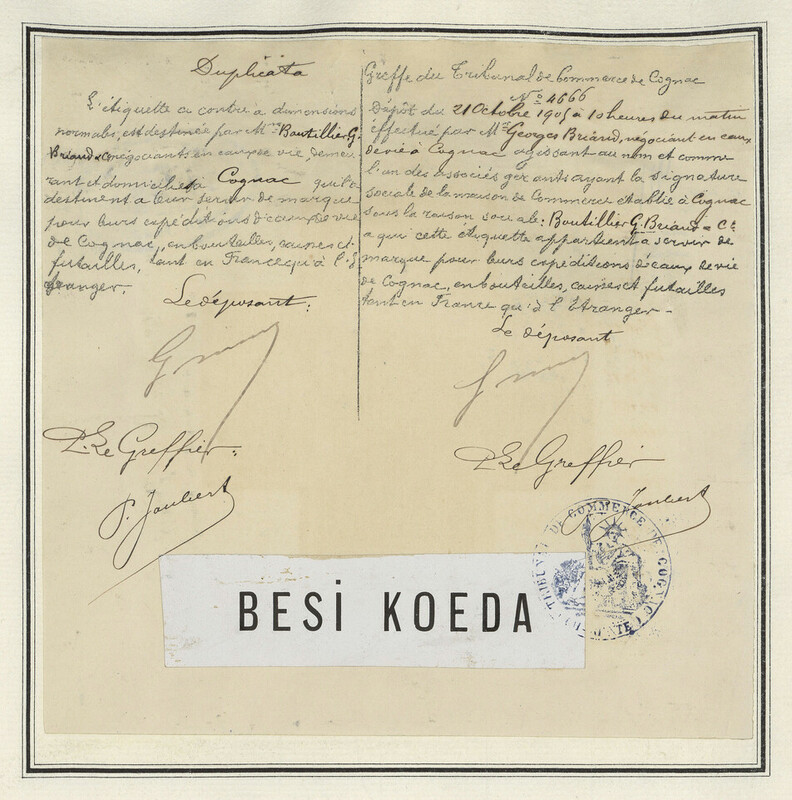 Duplicata
L'étiquette ci contre a dimensions
normales, est destinée par Mrs Boutillier G.
Briand & Co négociants en eaux de vie, demeu
rant et domiciliés à Cognac qu'ils
destinent à leur servir de marque
pour leurs expéditions d'eaux de vie
de Cognac, en bouteilles, caisses et
futailles, tant en France qu'à l'É
tranger.
Le déposant:
P. Le Greffier:
P. Joubert
Greffe du Tribunal de Commerce de Cognac
No 4666
Dépôt du 21 Octobre 1905 à 10 heures du matin
effectué par Mr Georges Briand, négociant en eaux
de vie à Cognac agissant au nom et comme
l'un des associés gérants ayant la signature
sociale de la maison de Commerce établie à Cognac
sous la raison sociale: Boutillier G. Briand & Cie
a qui cette étiquette appartient à servir de
marque pour leurs expéditions d'eaux de vie
de Cognac, en bouteilles, caisses et futailles
tant en France qu'à l'Étranger -
Le déposant
P. Le Greffier
Joubert
TRIBUNAL DE COMMERCE DE COGNAC
BESİ KOEDA